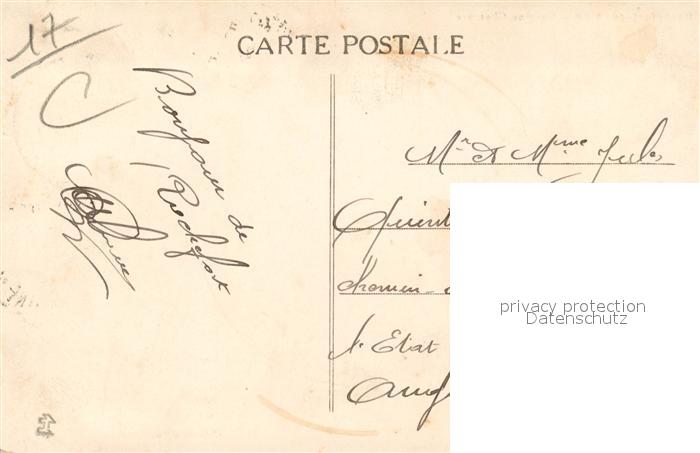 17
CARTE POSTALE
Bonjour de
Rochefort
Mr et Mme Jules
Quint
chemin
l'Etat
privacy protection
Datenschutz